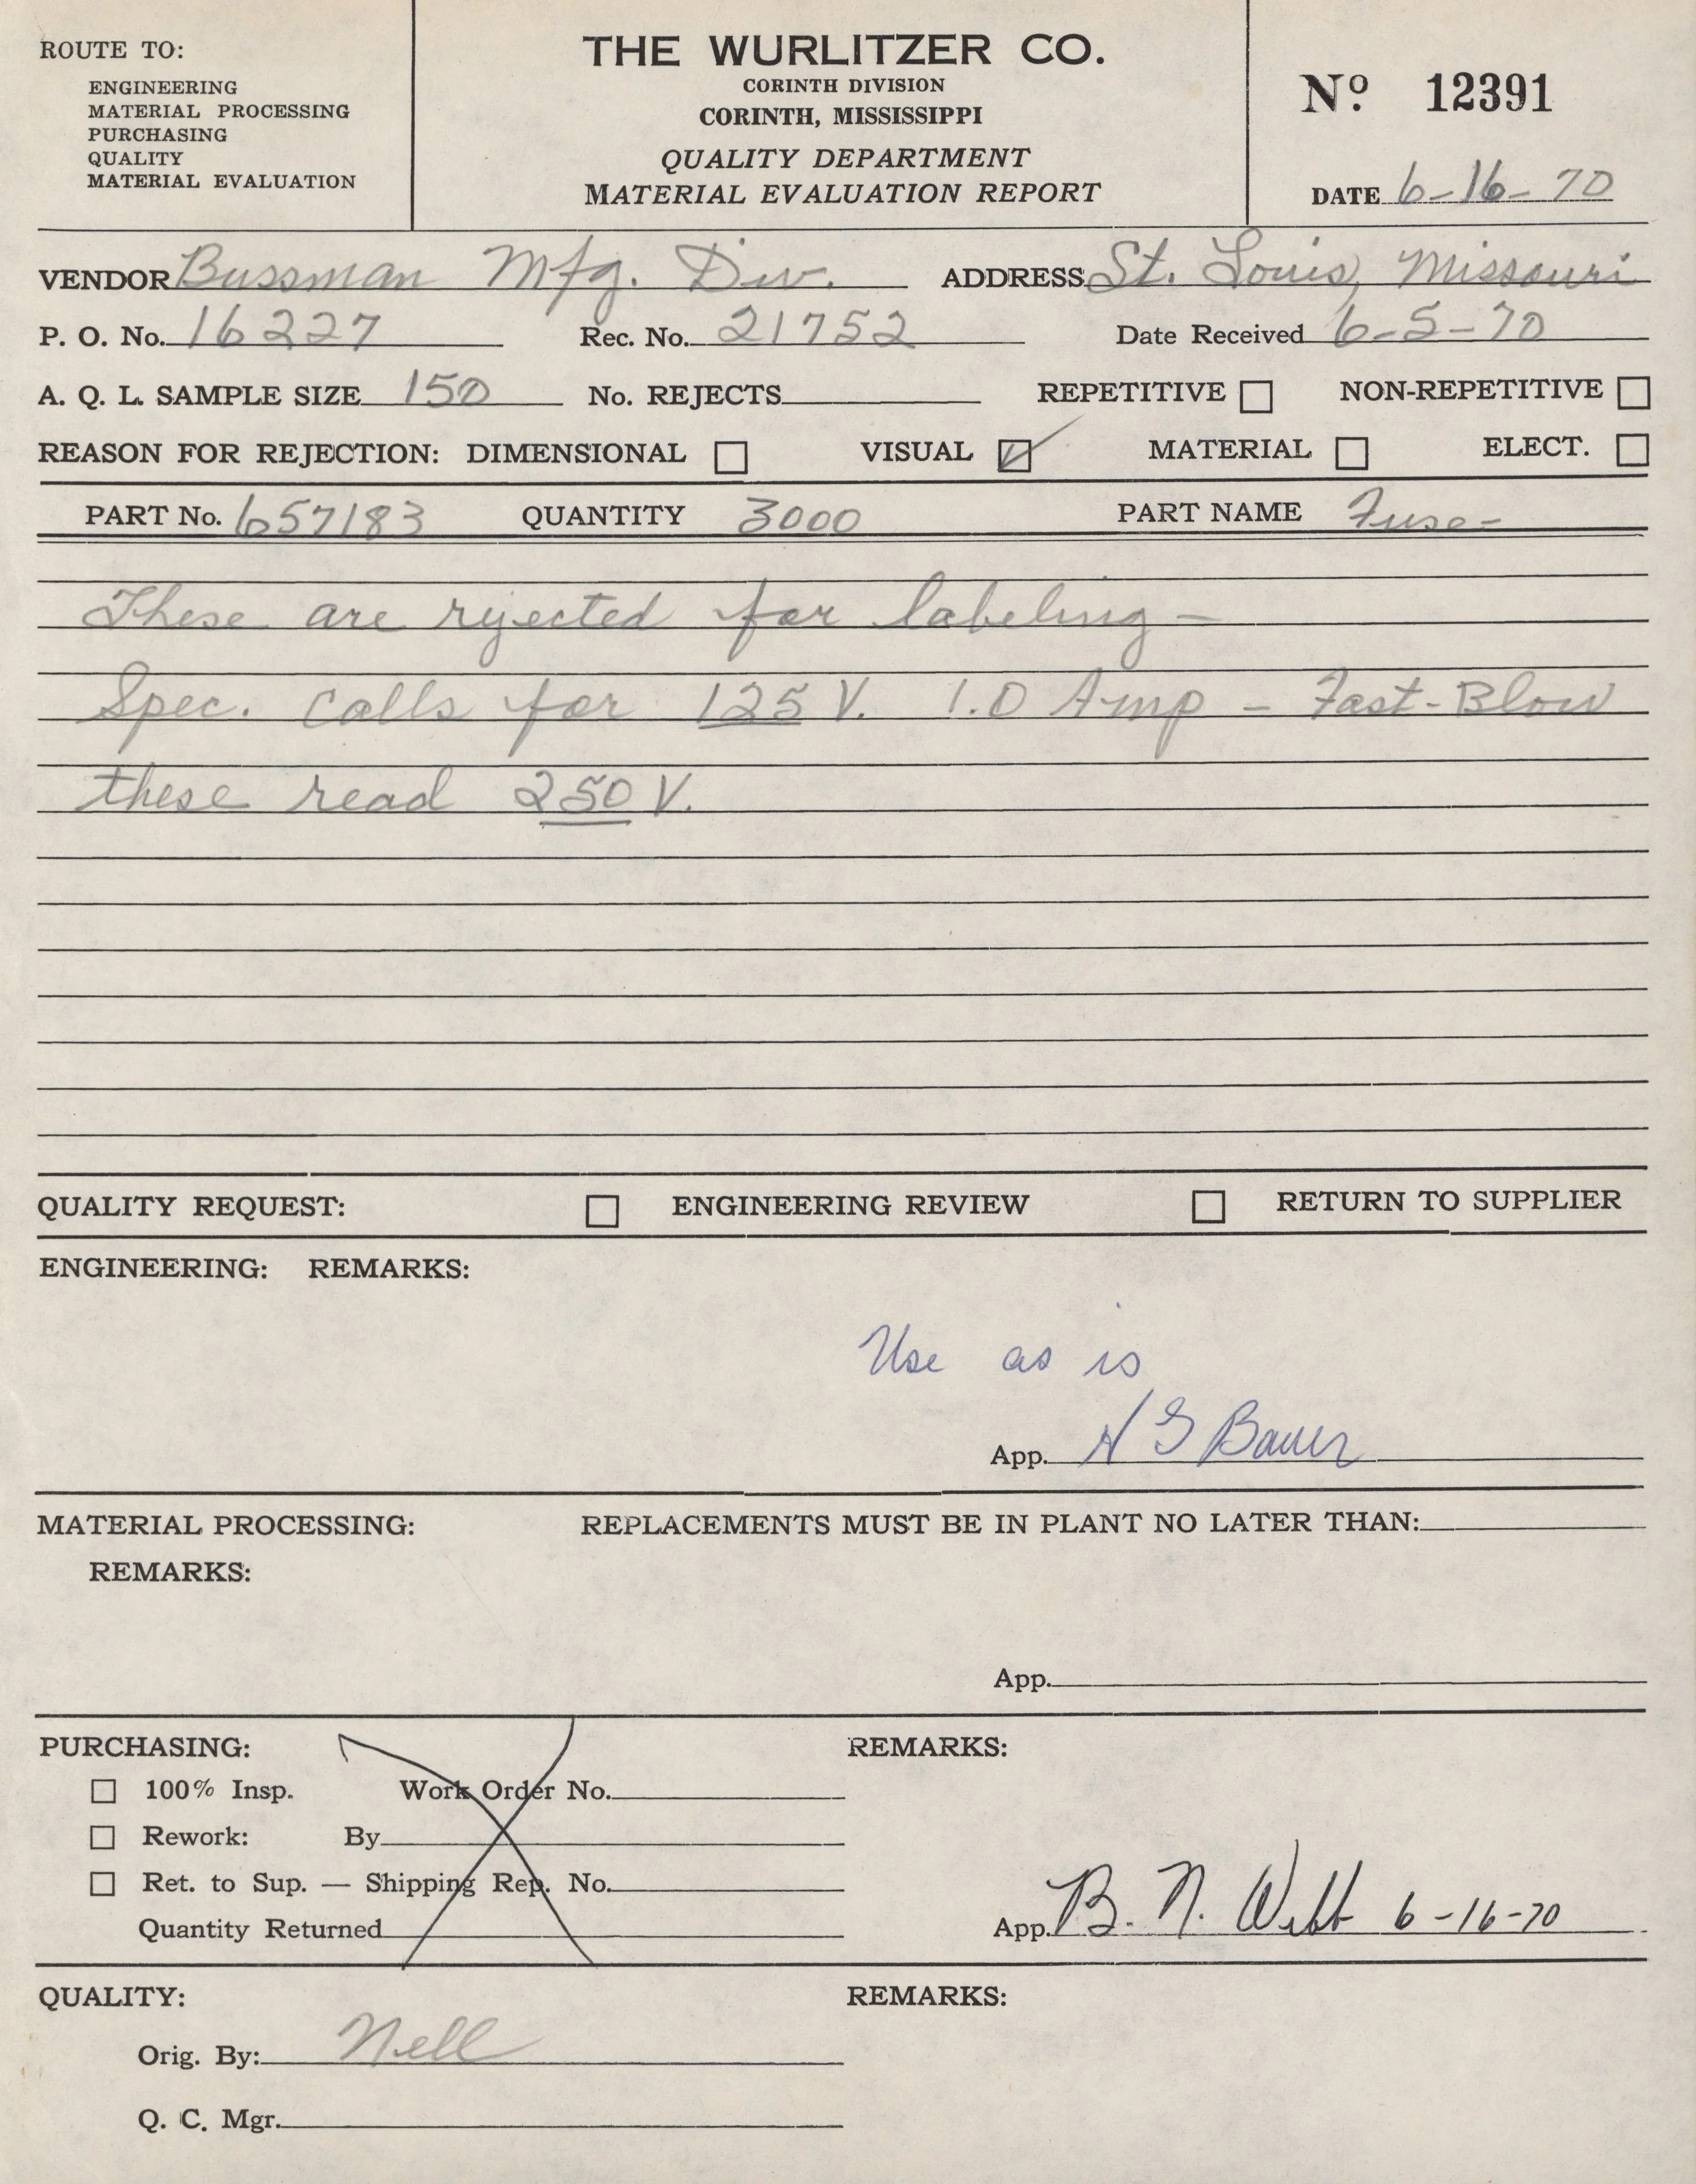 ROUTE TO:
ENGINEERING
MATERIAL PROCESSING
PURCHASING
QUALITY
MATERIAL EVALUATION
THE WURLITZER CO.
CORINTH DIVISION
CORINTH, MISSISSIPPI
QUALITY DEPARTMENT
MATERIAL EVALUATION REPORT
Nº 12391
DATE 6-16-70
VENDOR Bussman Mfg. Div. ADDRESS St. Louis, Missouri
P. O. No. 16227 Rec. No. 21752 Date Received 6-5-70
A. Q. L. SAMPLE SIZE 150 No. REJECTS REPETITIVE NON-REPETITIVE
REASON FOR REJECTION: DIMENSIONAL VISUAL MATERIAL ELECT.
PART No. 657183 QUANTITY 3000 PART NAME Fuse-
These are rejected for labeling-
Spec. calls for 125 V. 1.0 Amp - Fast-Blow
these read 250 V.
QUALITY REQUEST: ENGINEERING REVIEW RETURN TO SUPPLIER
ENGINEERING: REMARKS:
Use as is
App. H G Bauer
MATERIAL PROCESSING: REPLACEMENTS MUST BE IN PLANT NO LATER THAN:
REMARKS:
App.
PURCHASING: REMARKS:
100% Insp. Work Order No.
Rework: By
Ret. to Sup. — Shipping Rep. No.
Quantity Returned App. B. N. Webb 6-16-70
QUALITY: REMARKS:
Orig. By: Nell
Q. C. Mgr.